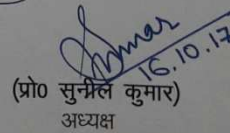 Kumar
16.10.17
(प्रो० सुनील कुमार)
अध्यक्ष